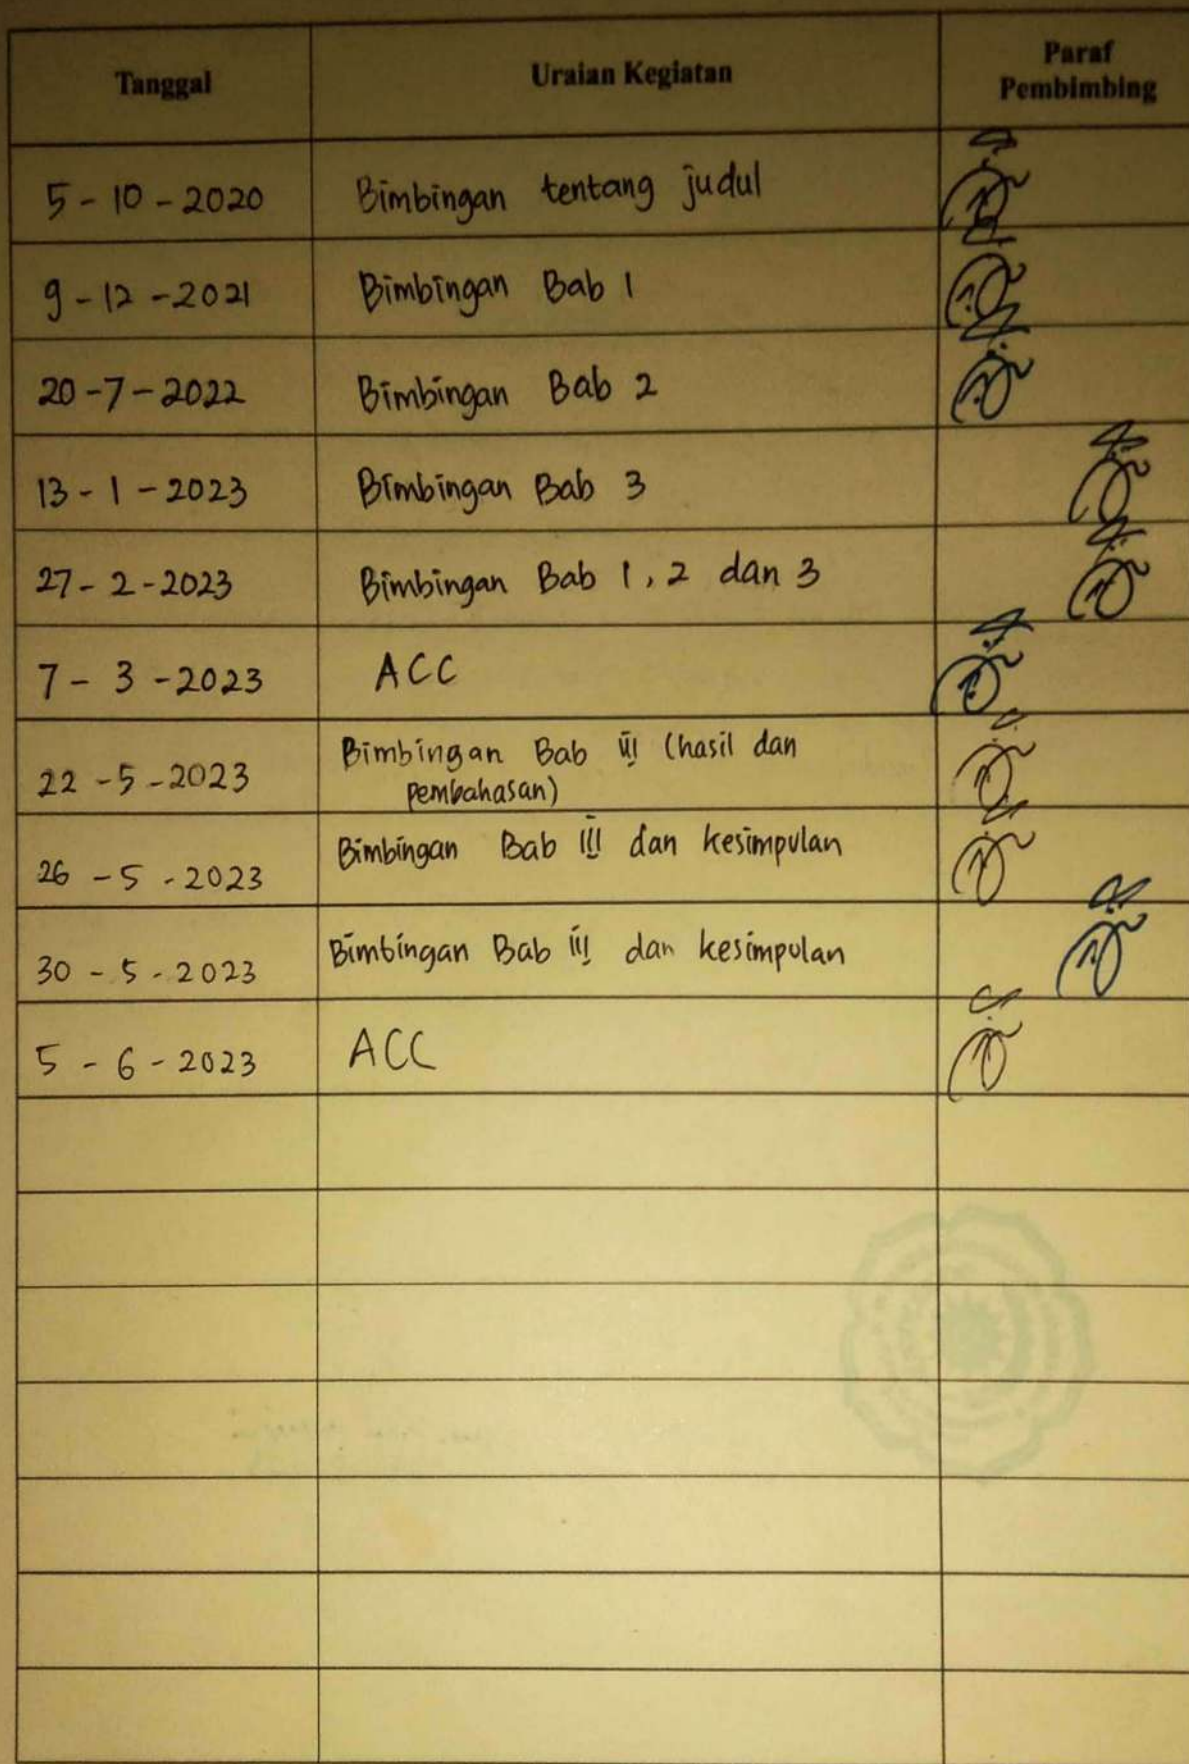 Tanggal
Uraian Kegiatan
Paraf
Pembimbing
5 - 10 - 2020 Bimbingan tentang judul
9 - 12 - 2021 Bimbingan Bab 1
20 - 7 - 2022 Bimbingan Bab 2
13 - 1 - 2023 Bimbingan Bab 3
27 - 2 - 2023 Bimbingan Bab 1, 2 dan 3
7 - 3 - 2023 ACC
22 - 5 - 2023 Bimbingan Bab iii (hasil dan
pembahasan)
26 - 5 - 2023 Bimbingan Bab iii dan kesimpulan
30 - 5 - 2023 Bimbingan Bab iii dan kesimpulan
5 - 6 - 2023 ACC